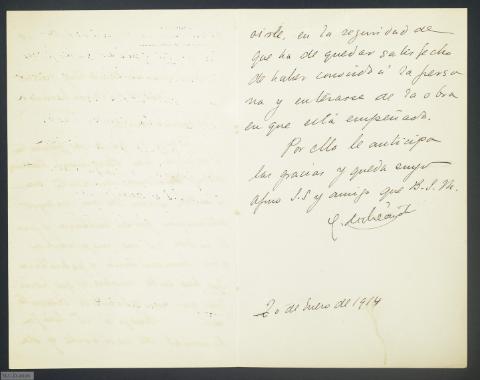 oirle, en la seguridad de
que ha de quedar satisfecho
de haber conocido á la perso
na y enterarse de la obra
en que está empeñada.
Por ello le anticipa
las gracias y queda suyo
afmo S.S y amigo que B.S.M.
20 de Enero de 1914